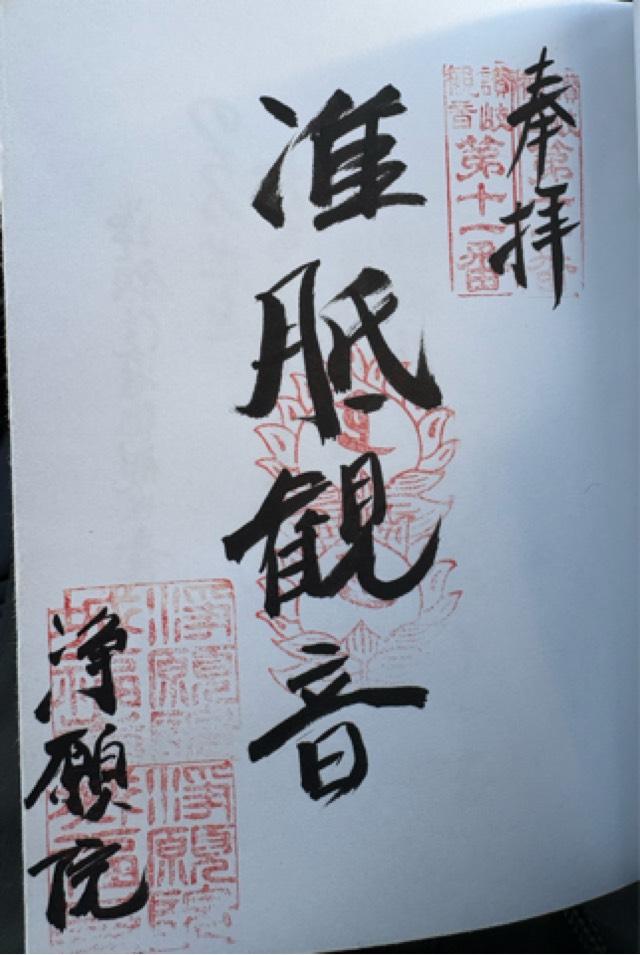 奉拝
讃岐
観音
第十一番
准胝観音
浄願院
浄願院